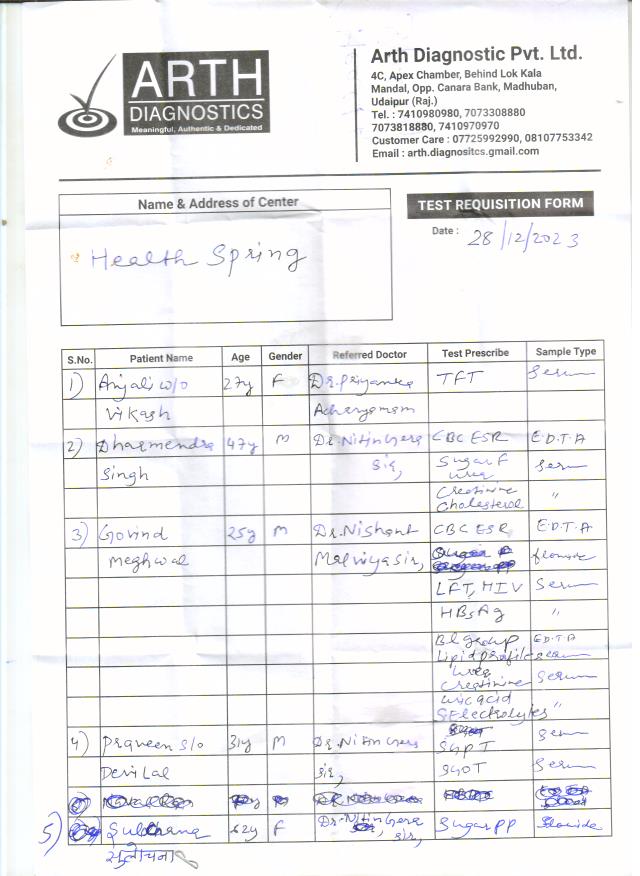 ARTH
DIAGNOSTICS
Meaningful, Authentic & Dedicated
Arth Diagnostic Pvt. Ltd.
4C, Apex Chamber, Behind Lok Kala
Mandal, Opp. Canara Bank, Madhuban,
Udaipur (Raj.)
Tel. : 7410980980, 7073308880
7073818880, 7410970970
Customer Care : 07725992990, 08107753342
Email : arth.diagnositcs.gmail.com
Name & Address of Center
TEST REQUISITION FORM
Date : 28/12/2023
Health Spring
S.No. Patient Name Age Gender Referred Doctor Test Prescribe Sample Type
1) Anjali w/o 27y F Dr. Priyanka TFT Serum
Vikash
2) Dharmendra 47y M Dr. Nitin CBC ESR E.D.T.A
Singh Sir, Sugar F Serum
Urea
Creatinine "
Cholesterol
3) Govind 25y M Dr. Nishant CBC ESR E.D.T.A
Meghwal Malviya sir,
LFT, HIV Serum
HBsAg "
Bl group E.D.T.A
Lipid profile Serum
Urea
Creatinine Serum
Uric acid "
SElectrolytes
4) Praveen S/o 31y M Dr. Nitin Serum
SGPT
Devi Lal sir, SGOT Serum
5) 62y F Dr. Nitin Sugar PP
sir,
सुलोचना